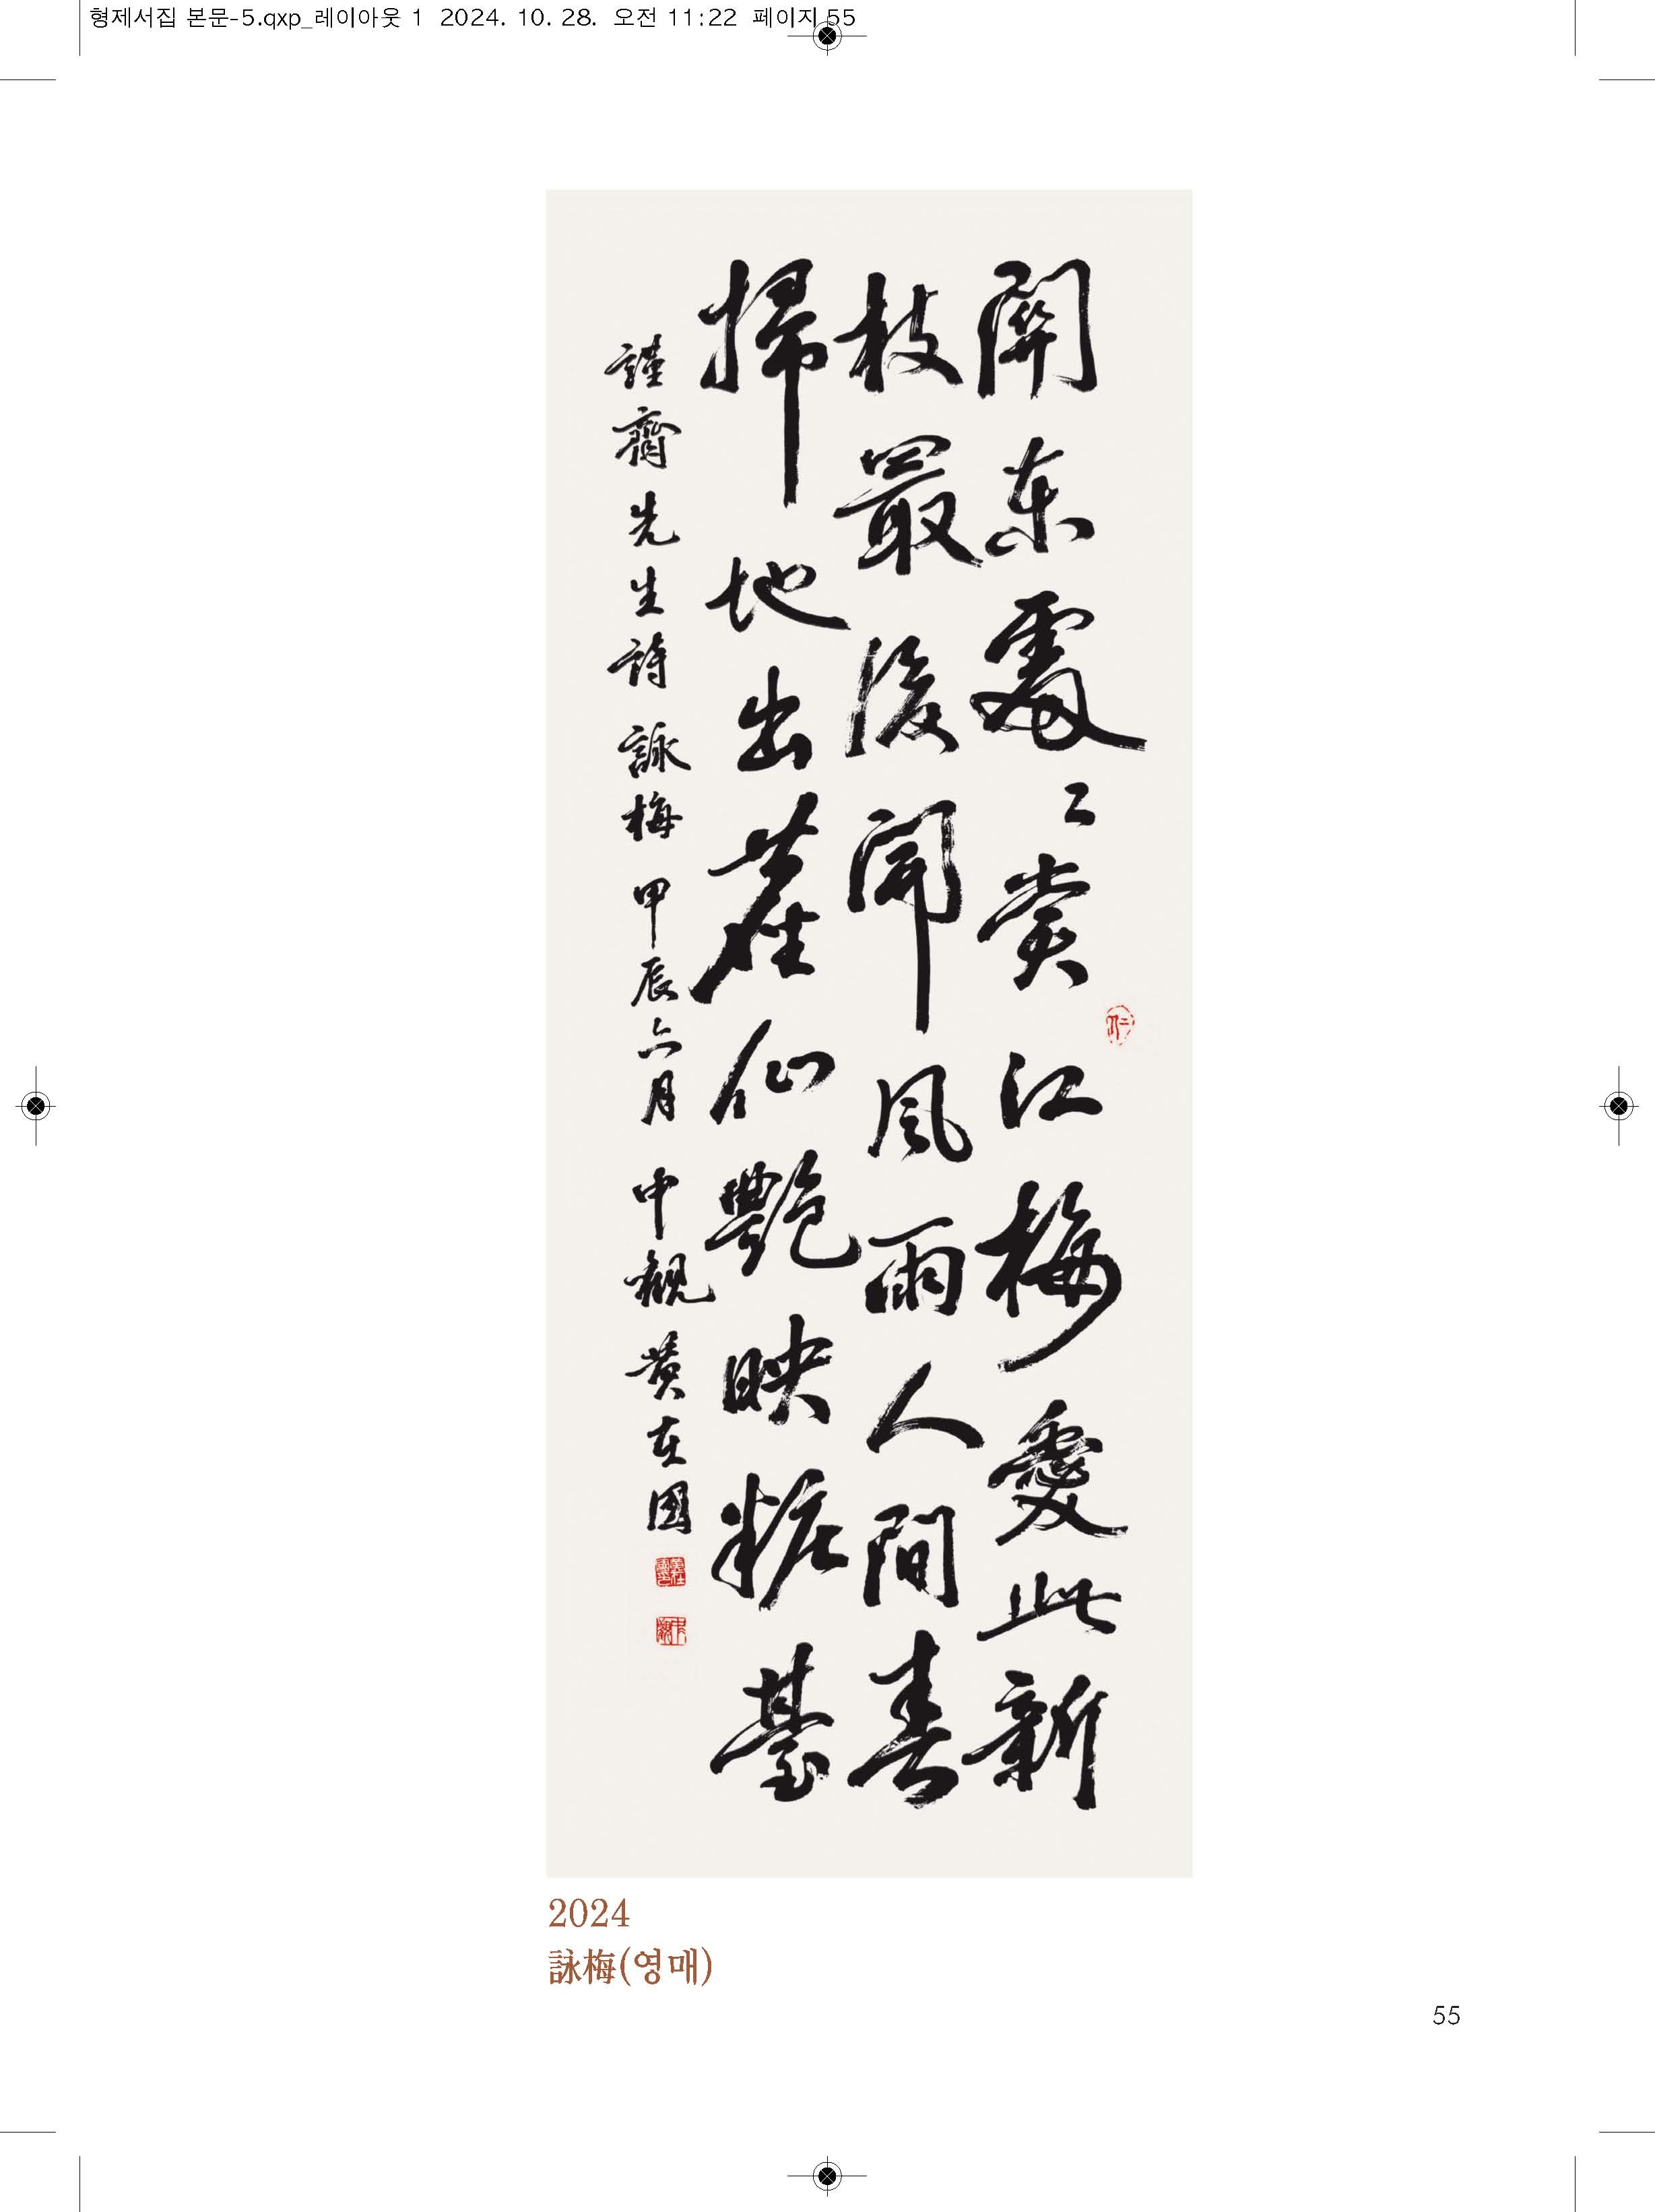 형제서집 본문-5.qxp_레이아웃 1 2024. 10. 28. 오전 11:22 페이지 55
關東處〻賞江梅愛此新
枝最後開風雨人間春
掃地出仙艶映粧臺
謹齋先生詩 詠梅 甲辰六月 中觀 黃在國
2024
詠梅(영매)
55